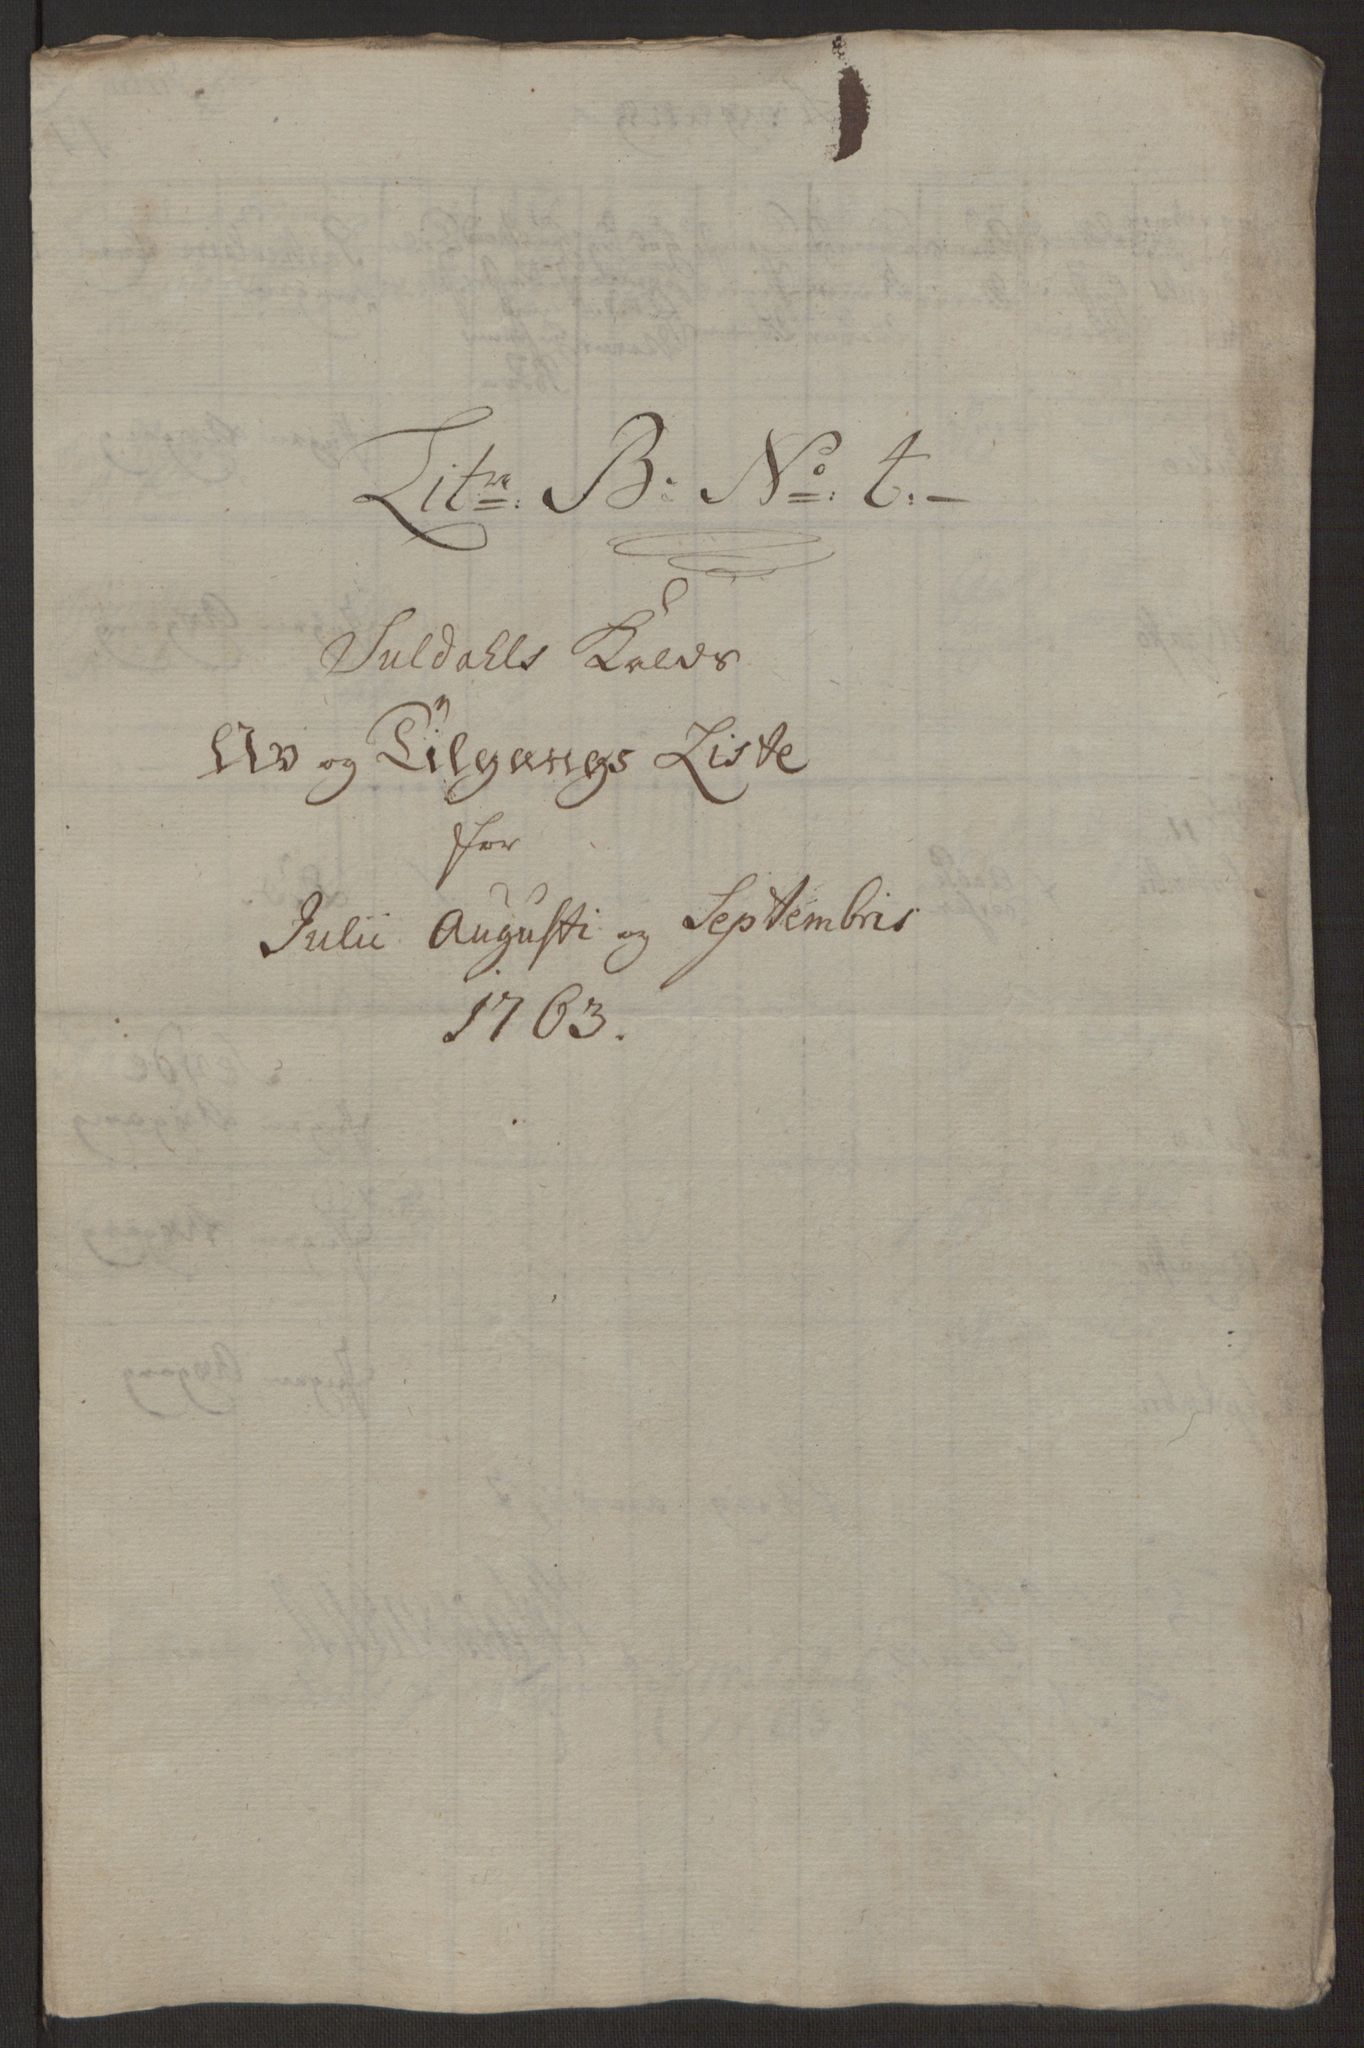 Litr: B: No: t. —
Suldahls Kalds
Av og Tilgangs Liste
for
Julii Augusti og Septembris
1763.